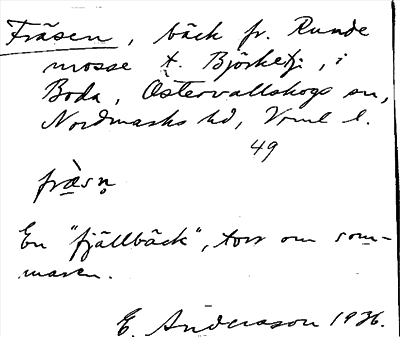 Fräsen, bäck fr. Runde
mosse t. Björketj., i
Boda, Östervallskogs sn,
Nordmarks hd, Vrml l.
49
fræ̀sn̥
En "fjällbäck", torr om som-
maren.
E. Andersson 1936.